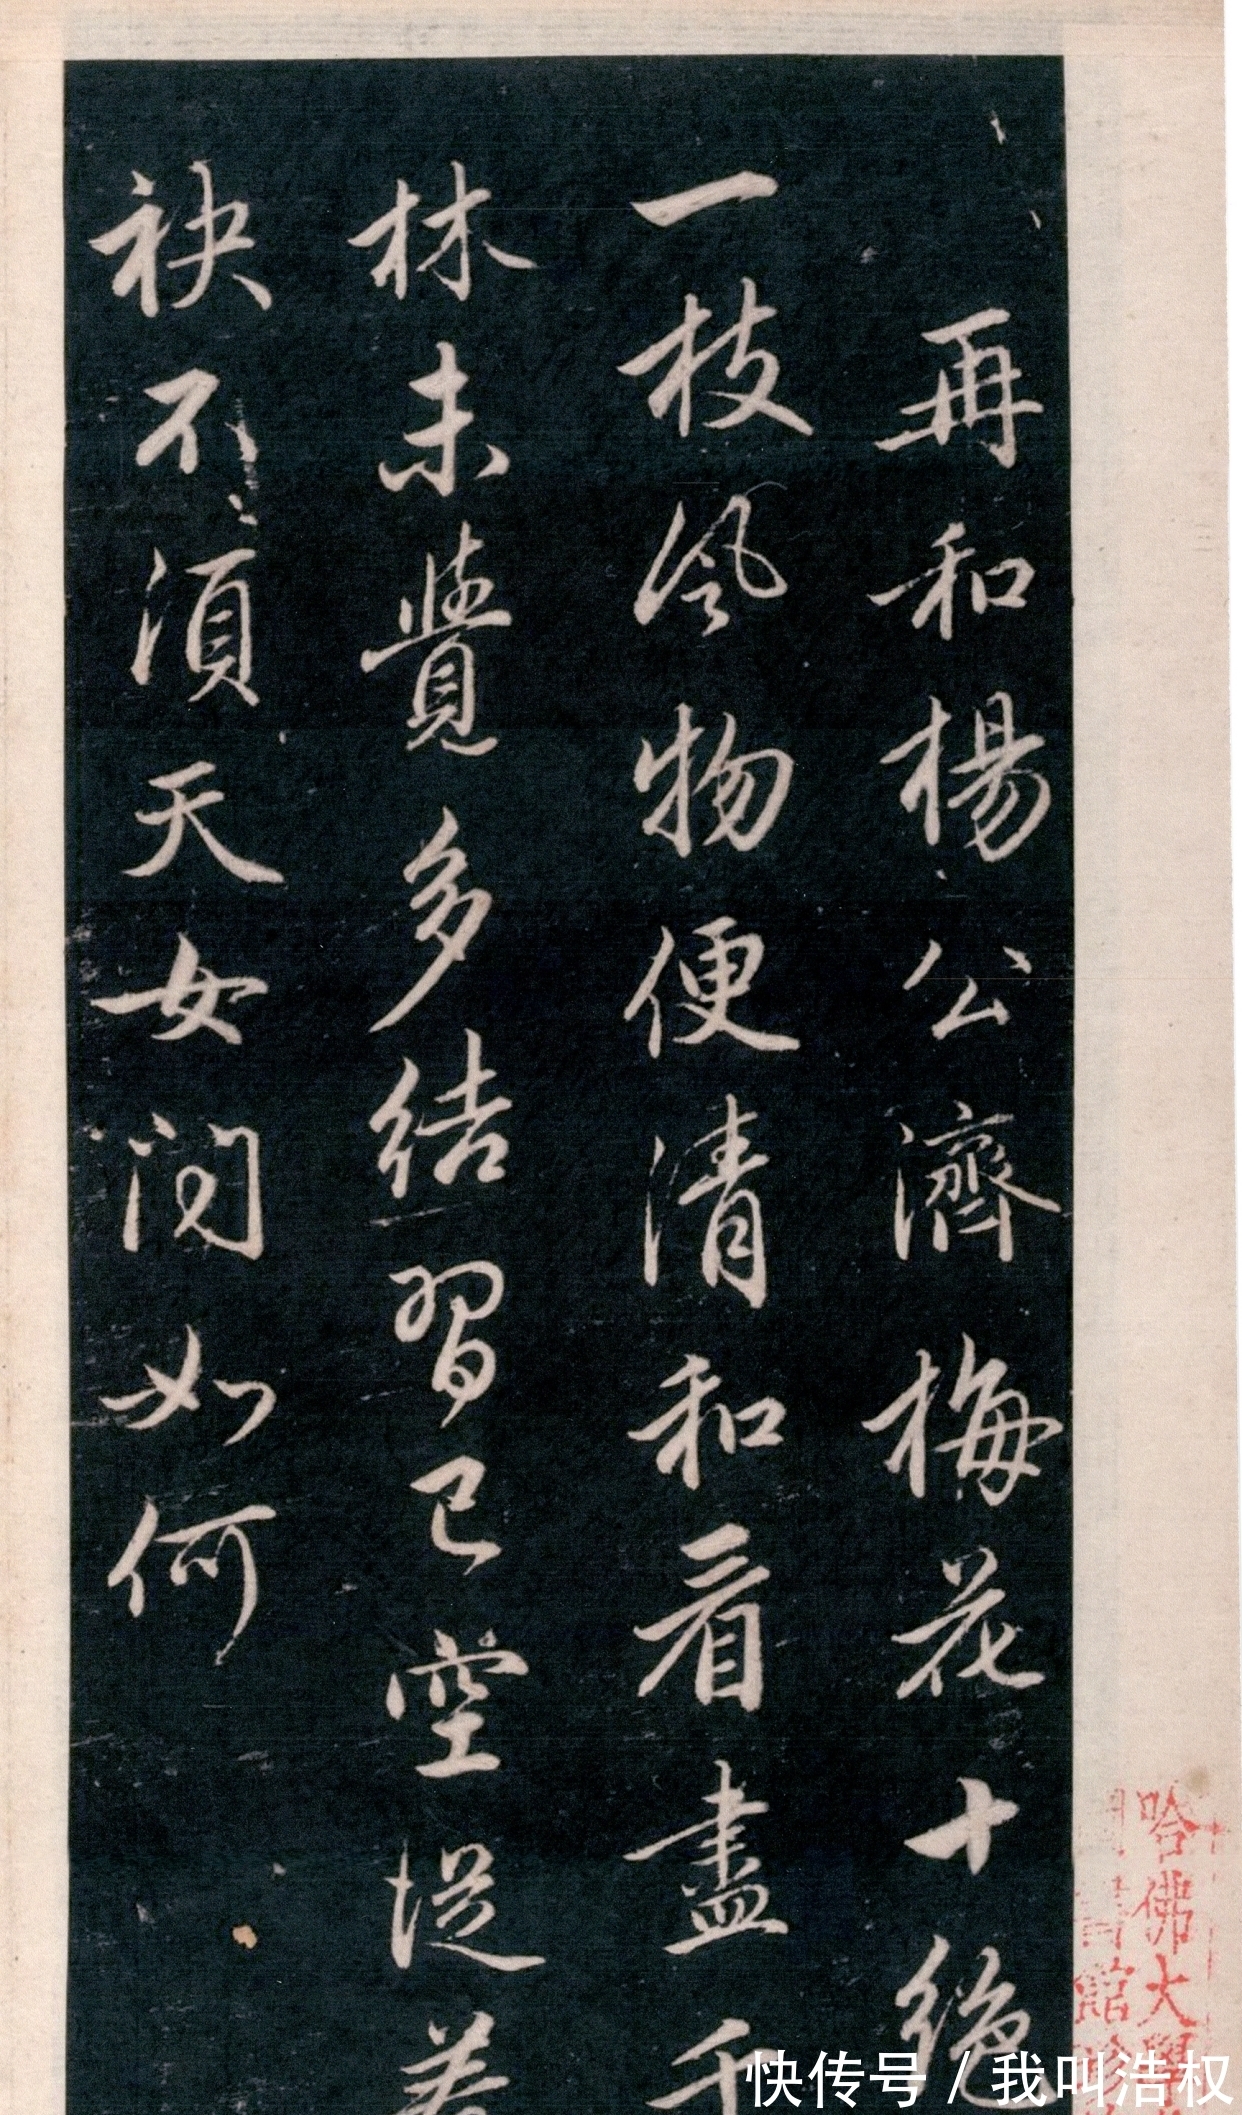 再和楊公濟梅花十絕
一枝風物便清和看盡千
林未覺多結習已空從著
袂不須天女問如何
哈佛大學
書館
快传号 / 我叫浩权